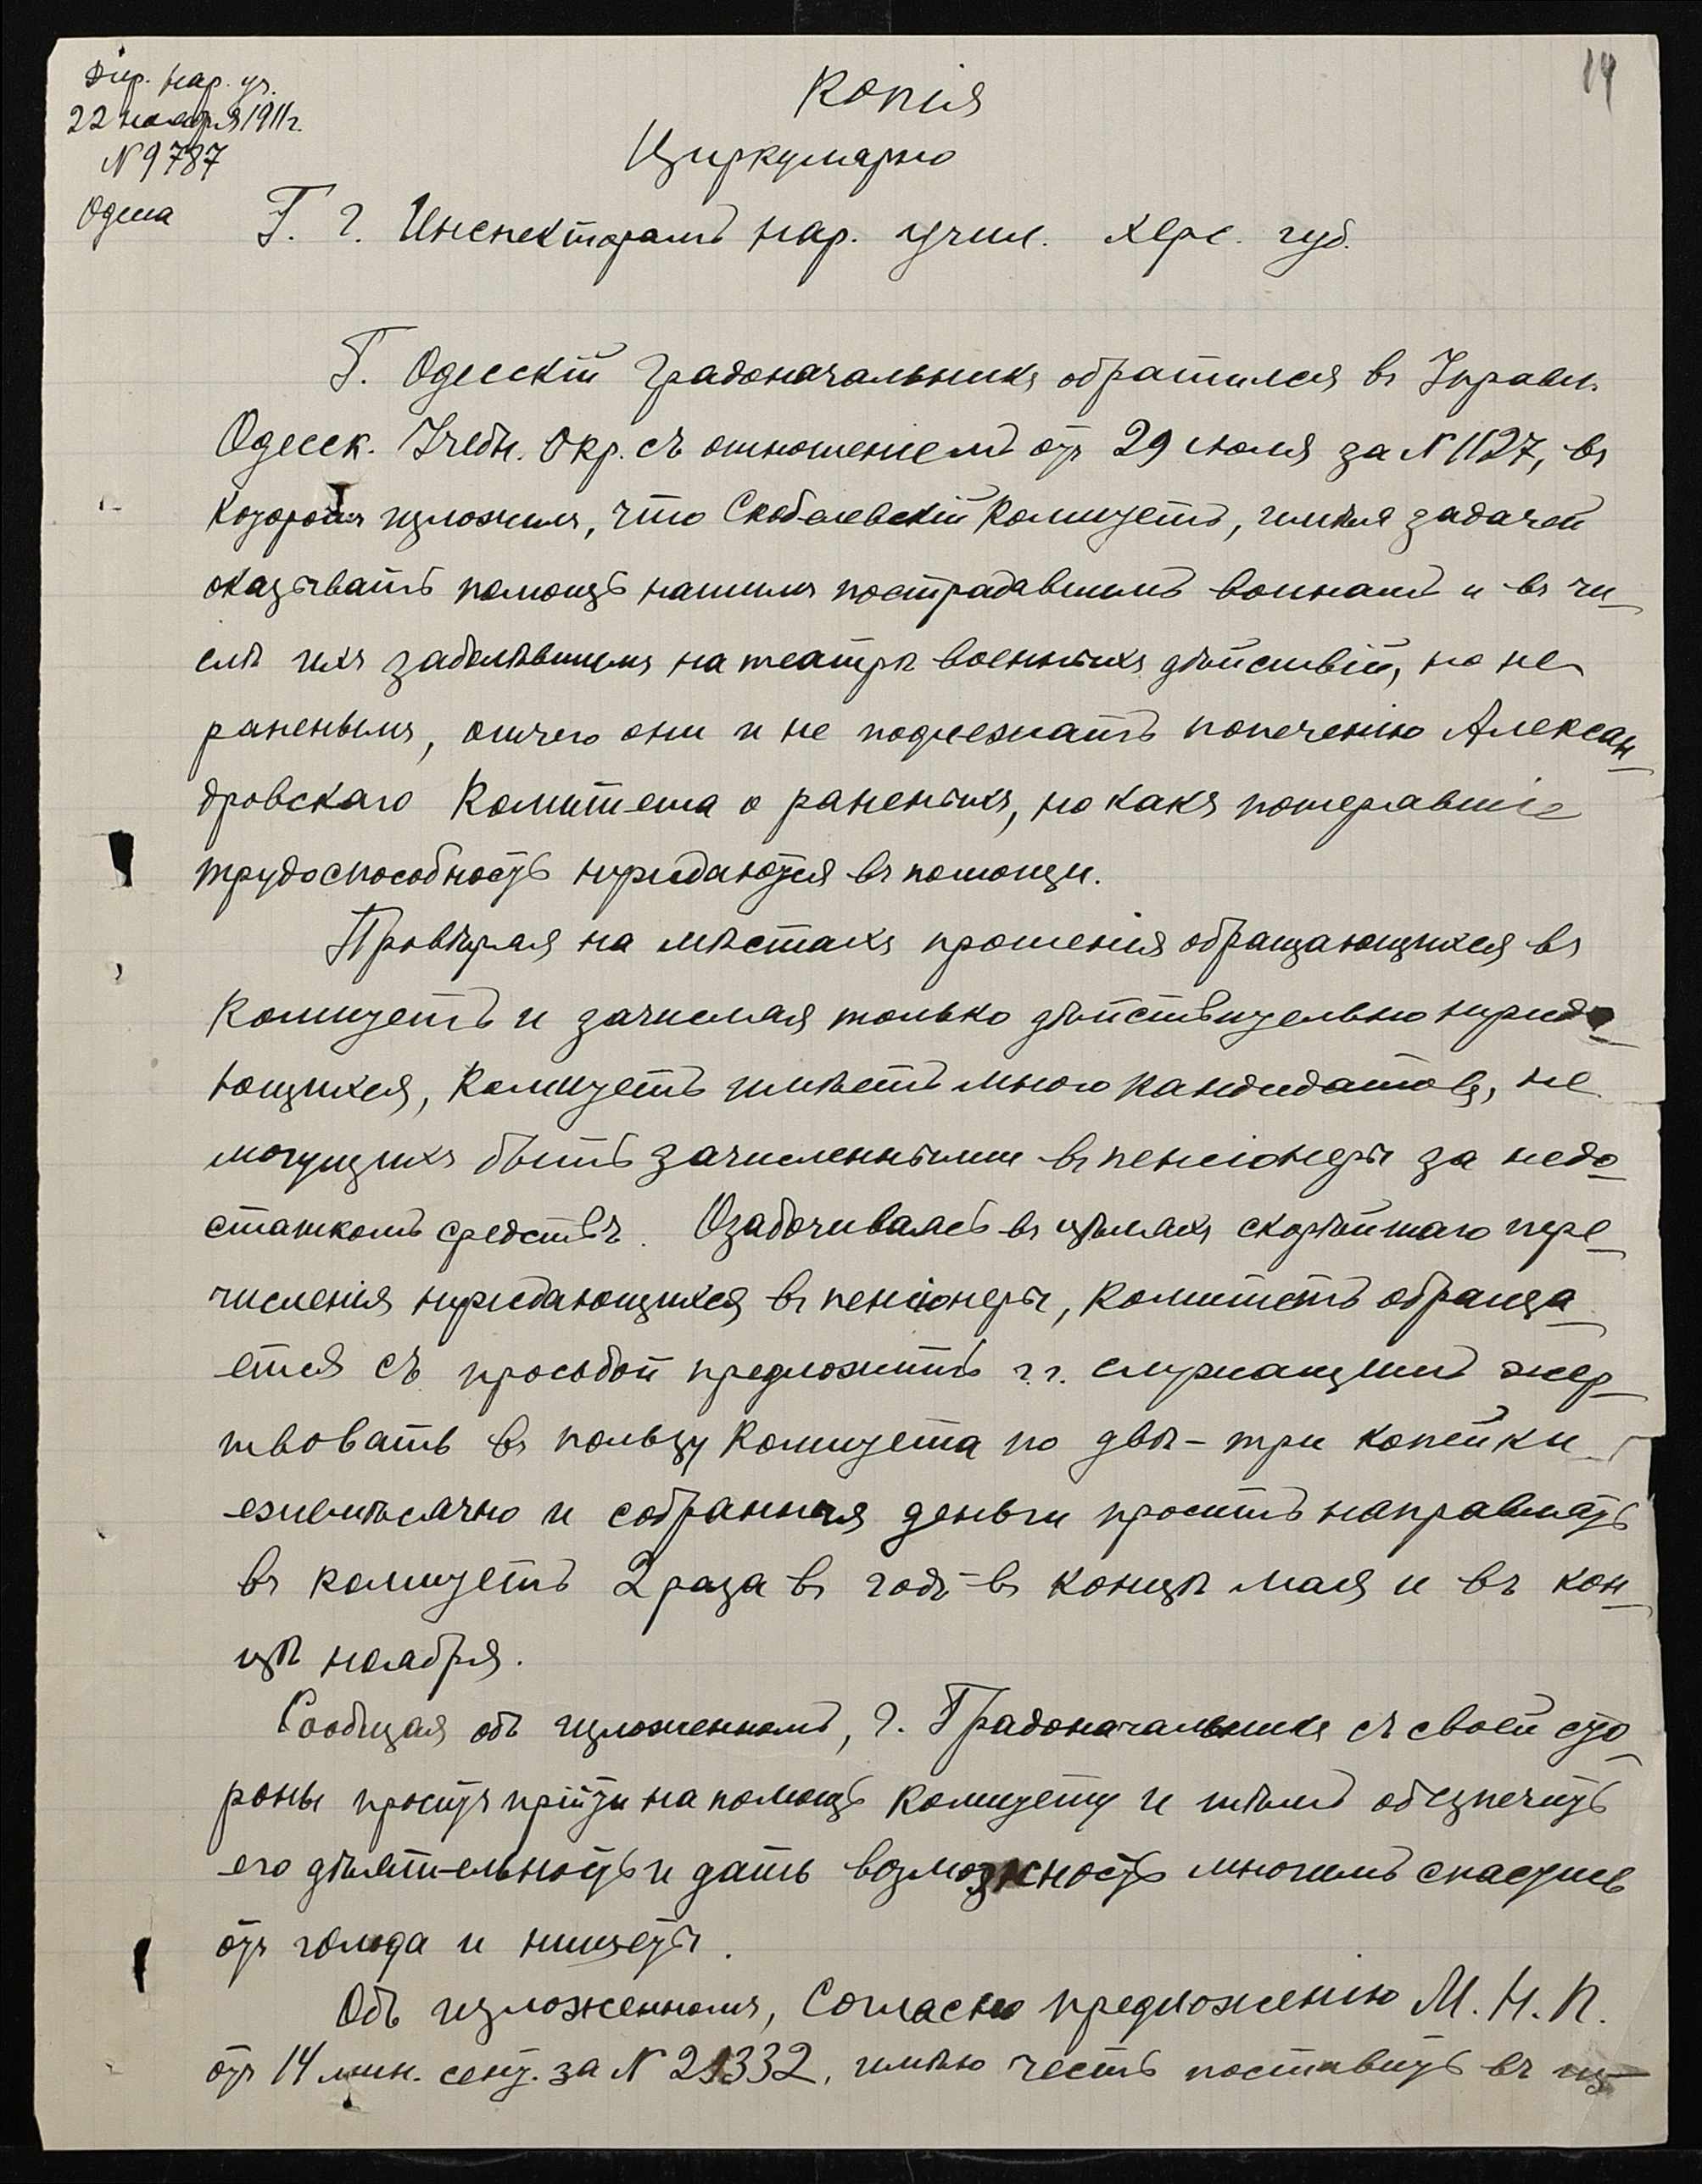 14
Дир. нар. уч.
22 ноября 1911 г.
N 9787
Одесса
Копія
Циркулярно
Г. г. Инспекторамъ нар. учил. Херс. губ.
Г. Одесскій Градоначальникъ обратился въ Управл.
Одесск. Учебн. Окр. съ отношеніемъ отъ 29 іюля за N 1127, въ
которомъ изложилъ, что Скобелевскій Комитетъ, имѣя задачей
оказывать помощь нашимъ пострадавшимъ воинамъ и въ чи-
слѣ ихъ заболѣвшимъ на театрѣ военныхъ дѣйствій, но не
раненымъ, отчего они и не подлежатъ попеченію Алексан-
дровскаго Комитета о раненыхъ, но какъ потерявшіе
трудоспособность нуждаются въ помощи.
Провѣряя на мѣстахъ прошенія обращающихся въ
Комитетъ и зачисляя только дѣйствительно нужда-
ющихся, Комитетъ имѣетъ много кандидатовъ, не
могущихъ быть зачисленными въ пенсіонеры за недо-
статкомъ средствъ. Озабочиваясь въ цѣляхъ скорѣйшаго пере-
численія нуждающихся въ пенсіонеры, Комитетъ обраща-
ется съ просьбой предложить г.г. служащимъ жер-
твовать въ пользу Комитета по двѣ-три копейки
ежемѣсячно и собранныя деньги проситъ направлять
въ комитетъ 2 раза въ годъ - въ концѣ мая и въ кон-
цѣ ноября.
Сообщая объ изложенномъ, г. Градоначальникъ съ своей сто-
роны проситъ прійти на помощь Комитету и тѣмъ обезпечить
его дѣятельность и дать возможность многимъ спастись
отъ голода и нищеты.
Объ изложенномъ, согласно предложенію М. Н. П.
отъ 14 мин. сент. за N 21332, имѣю честь поставить въ из-